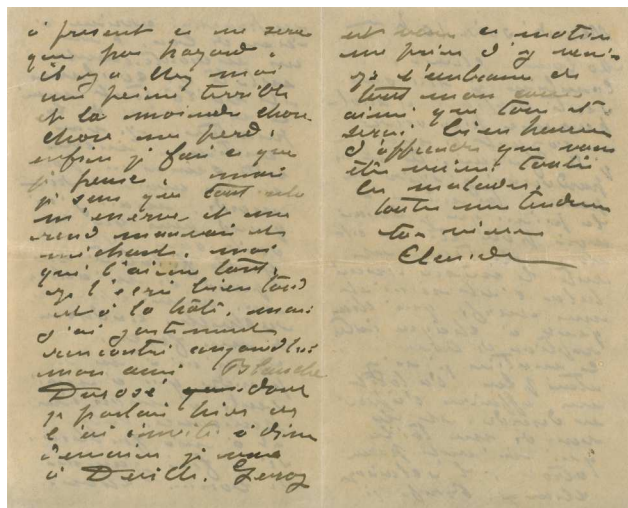 à présent ce ne sera
que par hasard.
il y a chez moi
une peine terrible
et la moindre chose
chose me perd.
enfin je fais ce que
je pense mais
je sens que tout cela
m'énerve et me
rend mauvais et
méchant. moi
qui t'aime tant.
je t'écris bien tard
et à la hâte. mais
j'ai justement
rencontré aujourd'hui
mon ami Blanche
dont
je parlais hier et
l'ai invité à dîner
demain je
à
est venu ce matin
me prier d'y venir
je t'embrasse de
tout mon coeur
ainsi que tous et
serai bien heureux
d'apprendre que vous
êtes mieux toutes
les malades.
toutes mes tendresses
ton vieux